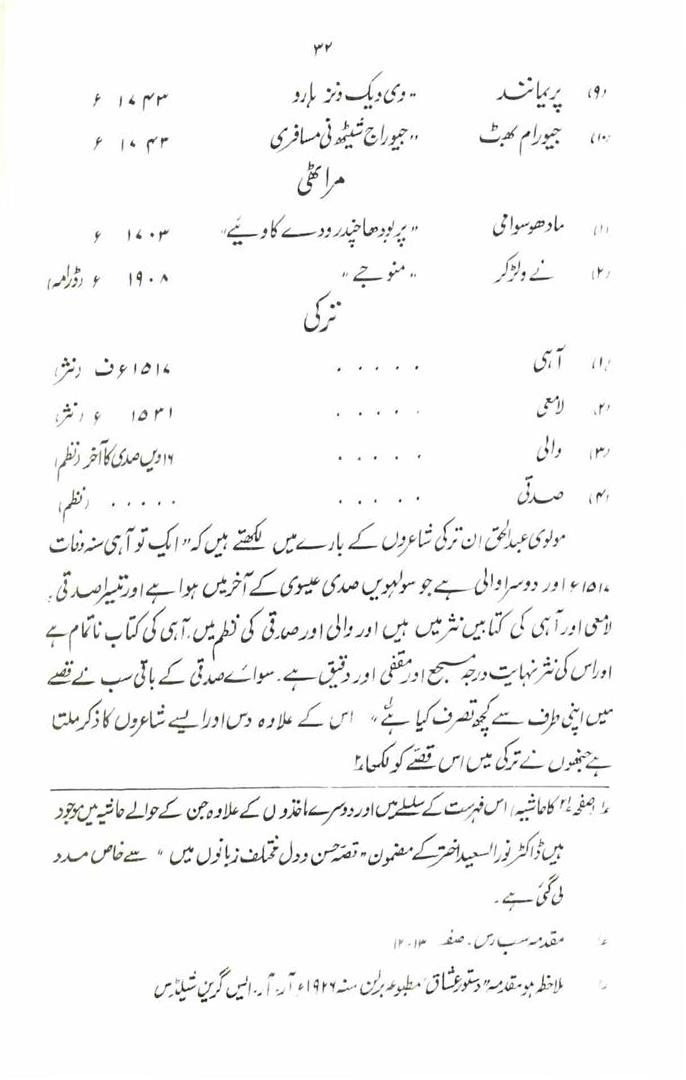 ۳۲
(۹) پریمانند "وی ویک ونز ہارو ۱۷۴۳ ء
(۱۰) جیورام بھٹ "جیوراج شیٹھ نی مسافری ۱۷۴۳ ء
مراٹھی
(۱) مادھو سوامی "پربودھا چندر ودے کاویئے" ۱۷۰۳ ء
(۲) نے ولڑکر "منوجے" ۱۹۰۸ ء (ڈرامہ)
ترکی
(۱) آہی . . . . . ۱۵۱۷ء ف (نثر)
(۲) لامعی . . . . . ۱۵۳۱ ء (نثر)
(۳) والی . . . . . ۱۶ویں صدی کا آخر (نظم)
(۴) صدقی . . . . . . . . . . (نظم)
مولوی عبدالحق ان ترکی شاعروں کے بارے میں لکھتے ہیں کہ "ایک تو آہی سنہ وفات
۱۵۱۷ء اور دوسرا والی ہے جو سولہویں صدی عیسوی کے آخر میں ہوا ہے اور تیسرا صدقی۔
لامعی اور آہی کی کتابیں نثر میں ہیں اور والی اور صدقی کی نظم میں۔ آہی کی کتاب ناتمام ہے
اور اس کی نثر نہایت درجہ مسجع اور مقفی اور دقیق ہے۔ سوائے صدقی کے باقی سب نے قصے
میں اپنی طرف سے کچھ تصرف کیا ہے۱" اس کے علاوہ دس اور ایسے شاعروں کا ذکر ملتا
ہے جنھوں نے ترکی میں اس قصّے کو لکھا۲
(صفحہ کا حاشیہ) اس فہرست کے سلسلے میں اور دوسرے ماخذوں کے علاوہ جن کے حوالے حاشیہ میں موجود
ہیں ڈاکٹر نورالسعید اختر کے مضمون "قصّہ حسن و دل مختلف زبانوں میں" سے خاص مدد
لی گئی ہے۔
۱ مقدمہ سب رس۔ صفحہ ۱۳۔۱۲
۲ ملاحظہ ہو مقدمہ "دستور عشاق" مطبوعہ برلن سنہ ۱۹۲۶ء آر۔ آر۔ ایس گرین شیلڈس